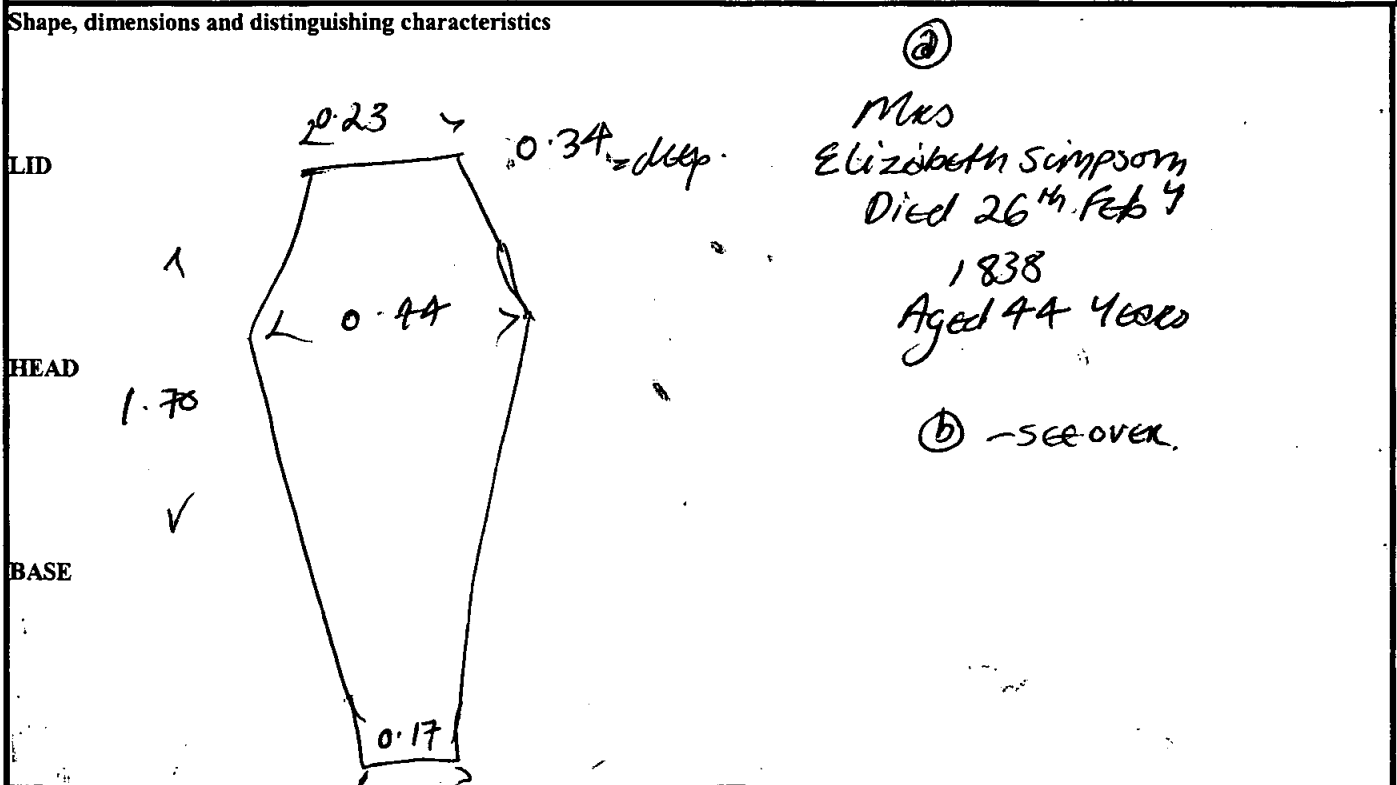 Shape, dimensions and distinguishing characteristics
LID
HEAD
BASE
0.23
0.34 = deep.
0.44
1.70
0.17
(a)
Mrs
Elizabeth Simpson
Died 26th Feby
1838
Aged 44 Years
(b) - SEE OVER.